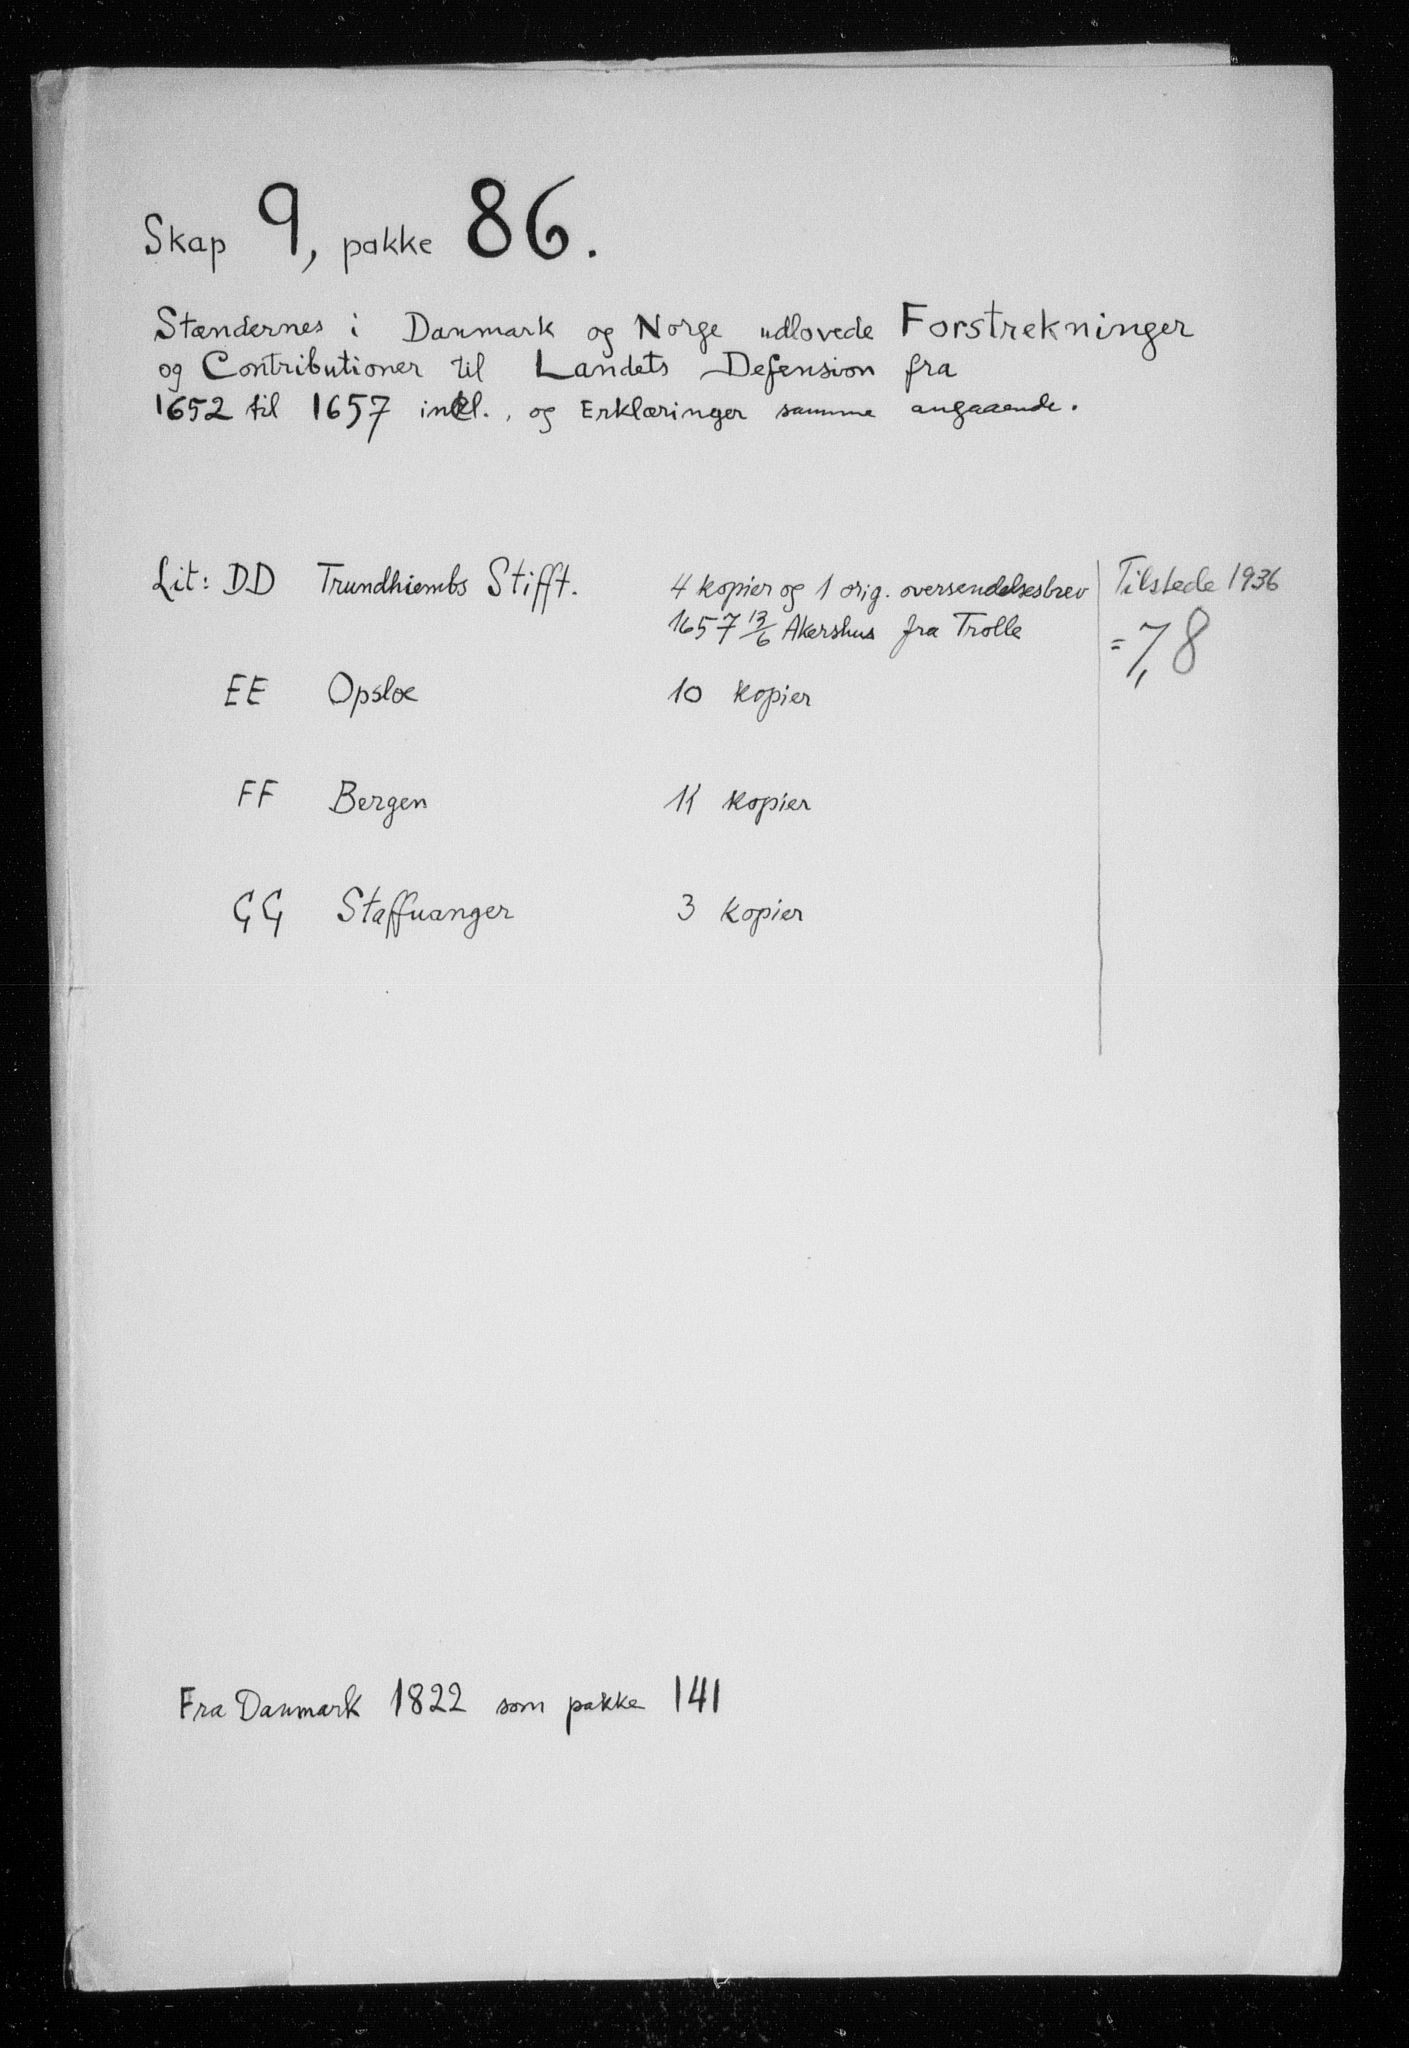 Skap 9, pakke 86.
Stændernes i Danmark og Norge udlovede Forstrekninger
og Contributioner til Landets Defension fra
1652 til 1657 inkl., og Erklæringer samme angaaende.
Lit: DD Trundhiembs Stifft. 4 kopier og 1 orig. oversendelsesbrev
1657 13/6 Akershus fra Trolle
Tilstede 1936
= 7,8
EE Opsloe 10 kopier
FF Bergen 11 kopier
GG Staffuanger 3 kopier
Fra Danmark 1822 som pakke 141